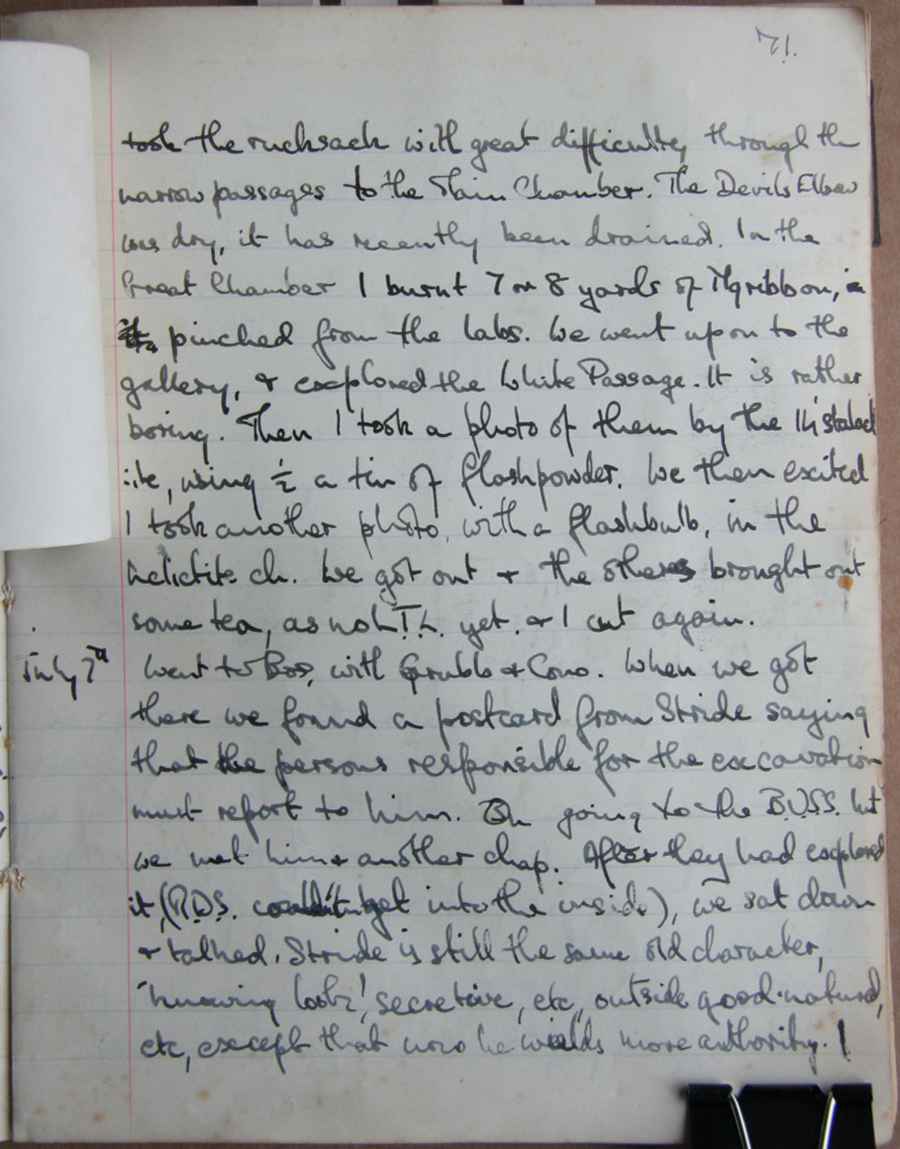 71.
took the rucksack with great difficulty through the
narrow passages to the Main Chamber. The Devils Elbow
was dry, it has recently been drained. In the
Great Chamber I burnt 7 or 8 yards of Mg ribbon,
pinched from the labs. We went up on to the
gallery, & explored the White Passage. It is rather
boring. Then I took a photo of them by the 14' stalact
:ite, using ½ a tin of flashpowder. We then exited
I took another photo, with a flashbulb, in the
helictite ch. We got out & the others brought out
some tea, as no L.T.L. yet, & I cut again.
July 7th Went to with Grubb & Cono. When we got
there we found a postcard from Stride saying
that the persons responsible for the excavation
must report to him. On going to the B.U.S.S. hut
we met him & another chap. After they had explored
it, (R.D.S. couldn't get into the inside), we sat down
& talked. Stride is still the same old character,
'knowing look', secretive, etc, outside good-natured,
etc, except that now he wields more authority. I